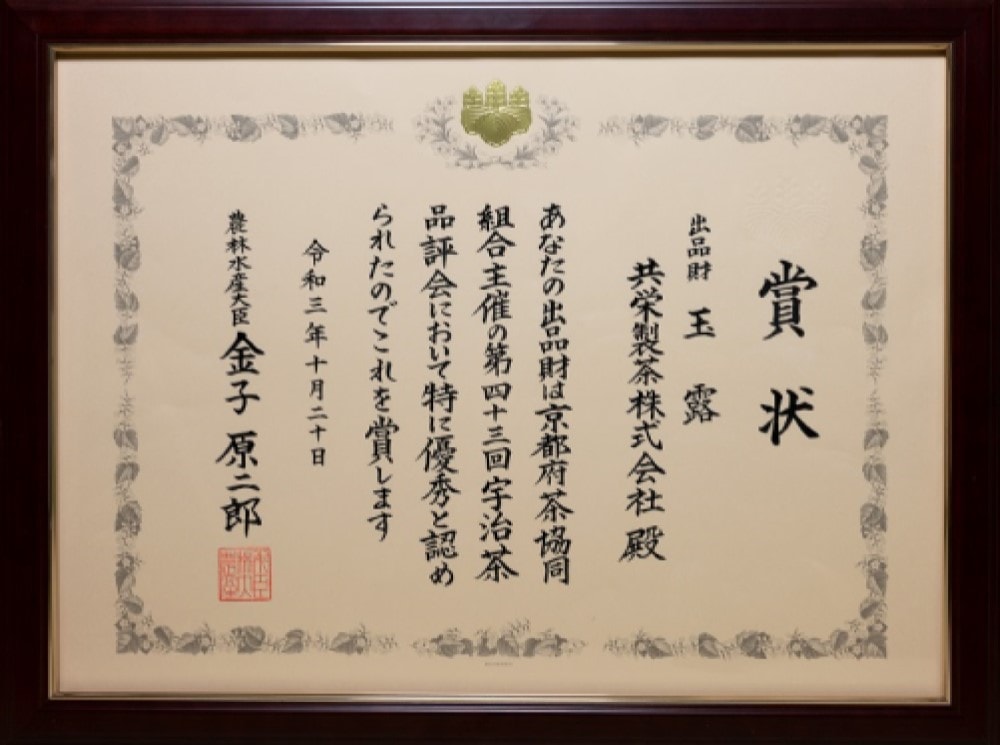 賞状
出品財 玉露
共栄製茶株式会社 殿
あなたの出品財は京都府茶協同
組合主催の第四十三回宇治茶
品評会において特に優秀と認め
られたのでこれを賞します
令和三年十月二十日
農林水産大臣 金子原二郎